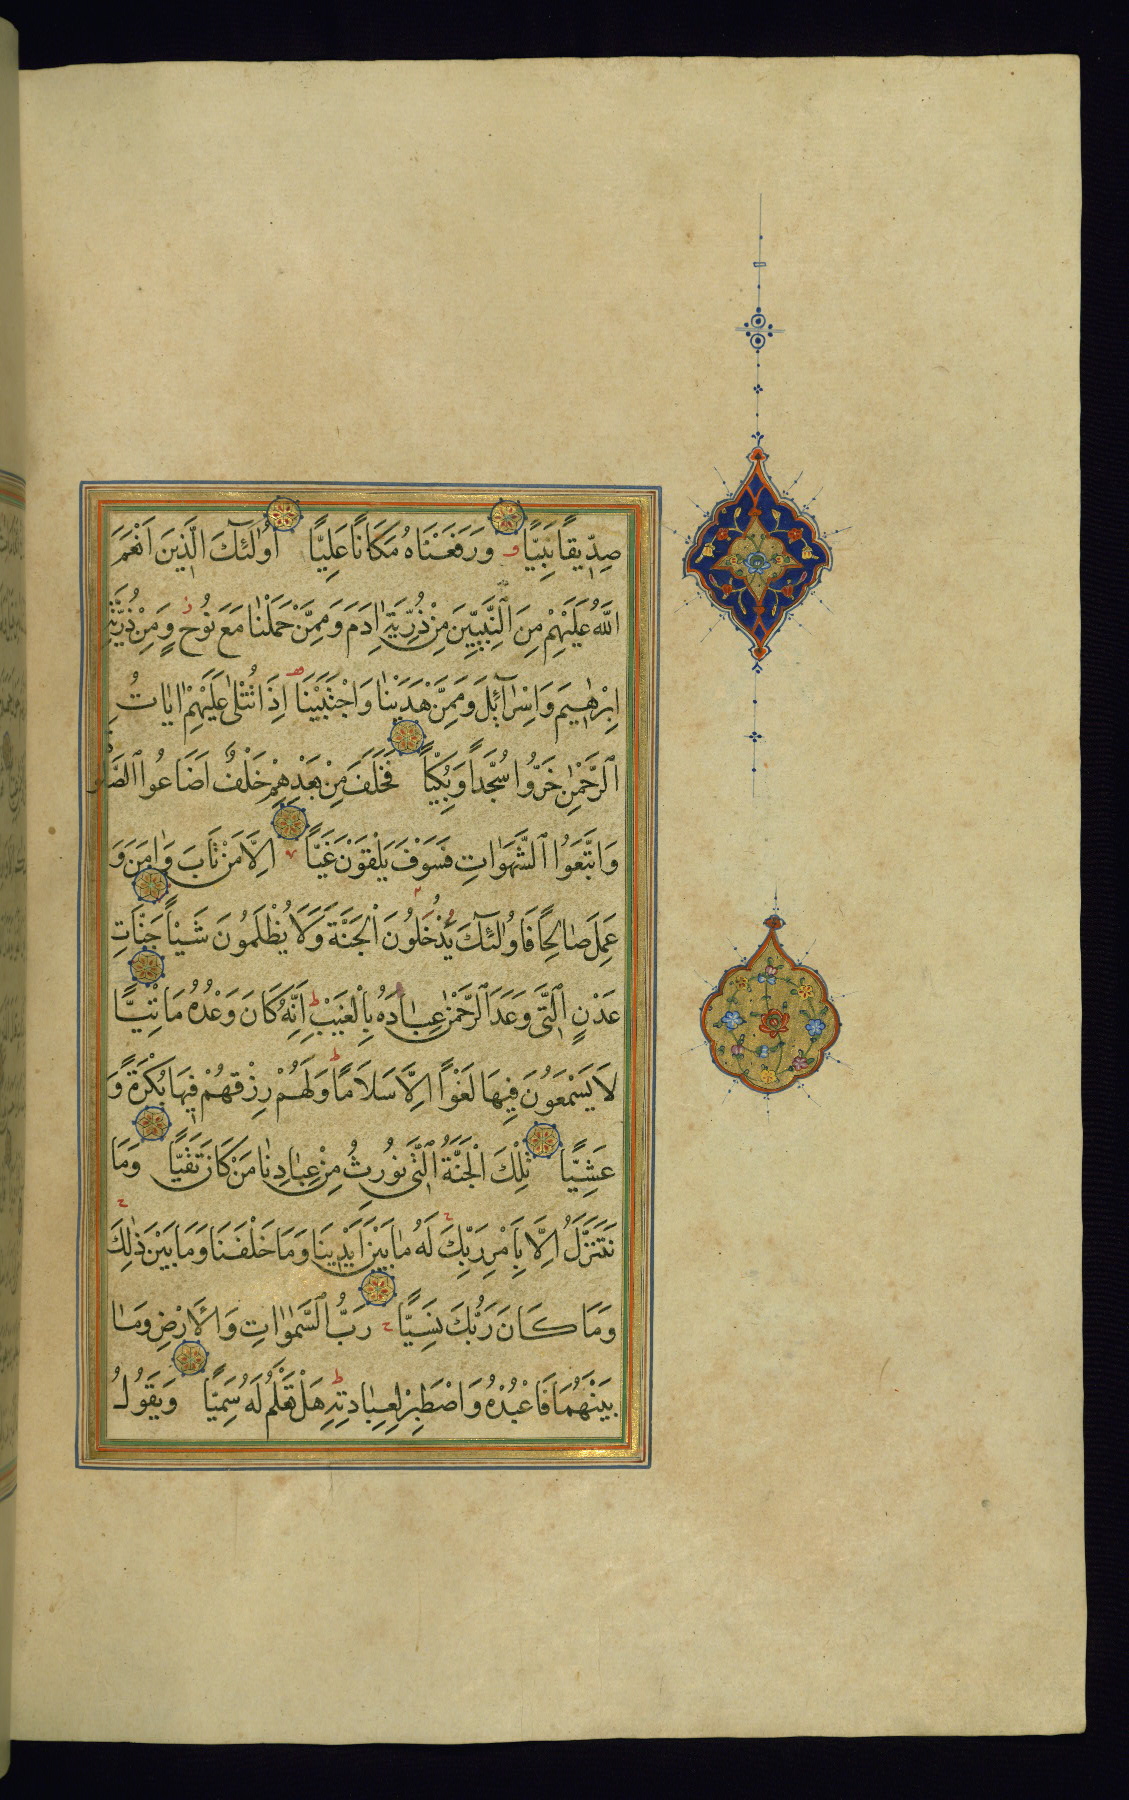 صِدّيقًا نَبِيًّا وَرَفَعْنَاهُ مَكَانًا عَلِيًّا اُولٰئِكَ الَّذِينَ اَنْعَمَ
اللّٰهُ عَلَيْهِمْ مِنَ النَّبِيّينَ مِنْ ذُرِّيَّةِ اٰدَمَ وَمِمَّنْ حَمَلْنَا مَعَ نُوحٍ وَمِنْ ذُرِّيَّةِ
اِبْرٰهِيمَ وَاِسْرَآئِلَ وَمِمَّنْ هَدَيْنَا وَاجْتَبَيْنَا اِذَا تُتْلٰى عَلَيْهِمْ اٰيَاتُ
الرَّحْمٰنِ خَرُّوا سُجَّدًا وَبُكِيًّا فَخَلَفَ مِنْ بَعْدِهِمْ خَلْفٌ اَضَاعُوا الصَّلٰوةَ
وَاتَّبَعُوا الشَّهَوَاتِ فَسَوْفَ يَلْقَوْنَ غَيًّا اِلَّا مَنْ تَابَ وَاٰمَنَ وَ
عَمِلَ صَالِحًا فَاُولٰئِكَ يَدْخُلُونَ الْجَنَّةَ وَلَا يُظْلَمُونَ شَيْئًا جَنَّاتِ
عَدْنٍ الَّتِي وَعَدَ الرَّحْمٰنُ عِبَادَهُ بِالْغَيْبِ اِنَّهُ كَانَ وَعْدُهُ مَاْتِيًّا
لَا يَسْمَعُونَ فِيهَا لَغْوًا اِلَّا سَلَامًا وَلَهُمْ رِزْقُهُمْ فِيهَا بُكْرَةً وَ
عَشِيًّا تِلْكَ الْجَنَّةُ الَّتِي نُورِثُ مِنْ عِبَادِنَا مَنْ كَانَ تَقِيًّا وَمَا
نَتَنَزَّلُ اِلَّا بِاَمْرِ رَبِّكَ لَهُ مَا بَيْنَ اَيْدِينَا وَمَا خَلْفَنَا وَمَا بَيْنَ ذٰلِكَ
وَمَا كَانَ رَبُّكَ نَسِيًّا رَبُّ السَّمٰوَاتِ وَالْاَرْضِ وَمَا
بَيْنَهُمَا فَاعْبُدْهُ وَاصْطَبِرْ لِعِبَادَتِهِ هَلْ تَعْلَمُ لَهُ سَمِيًّا وَيَقُولُ